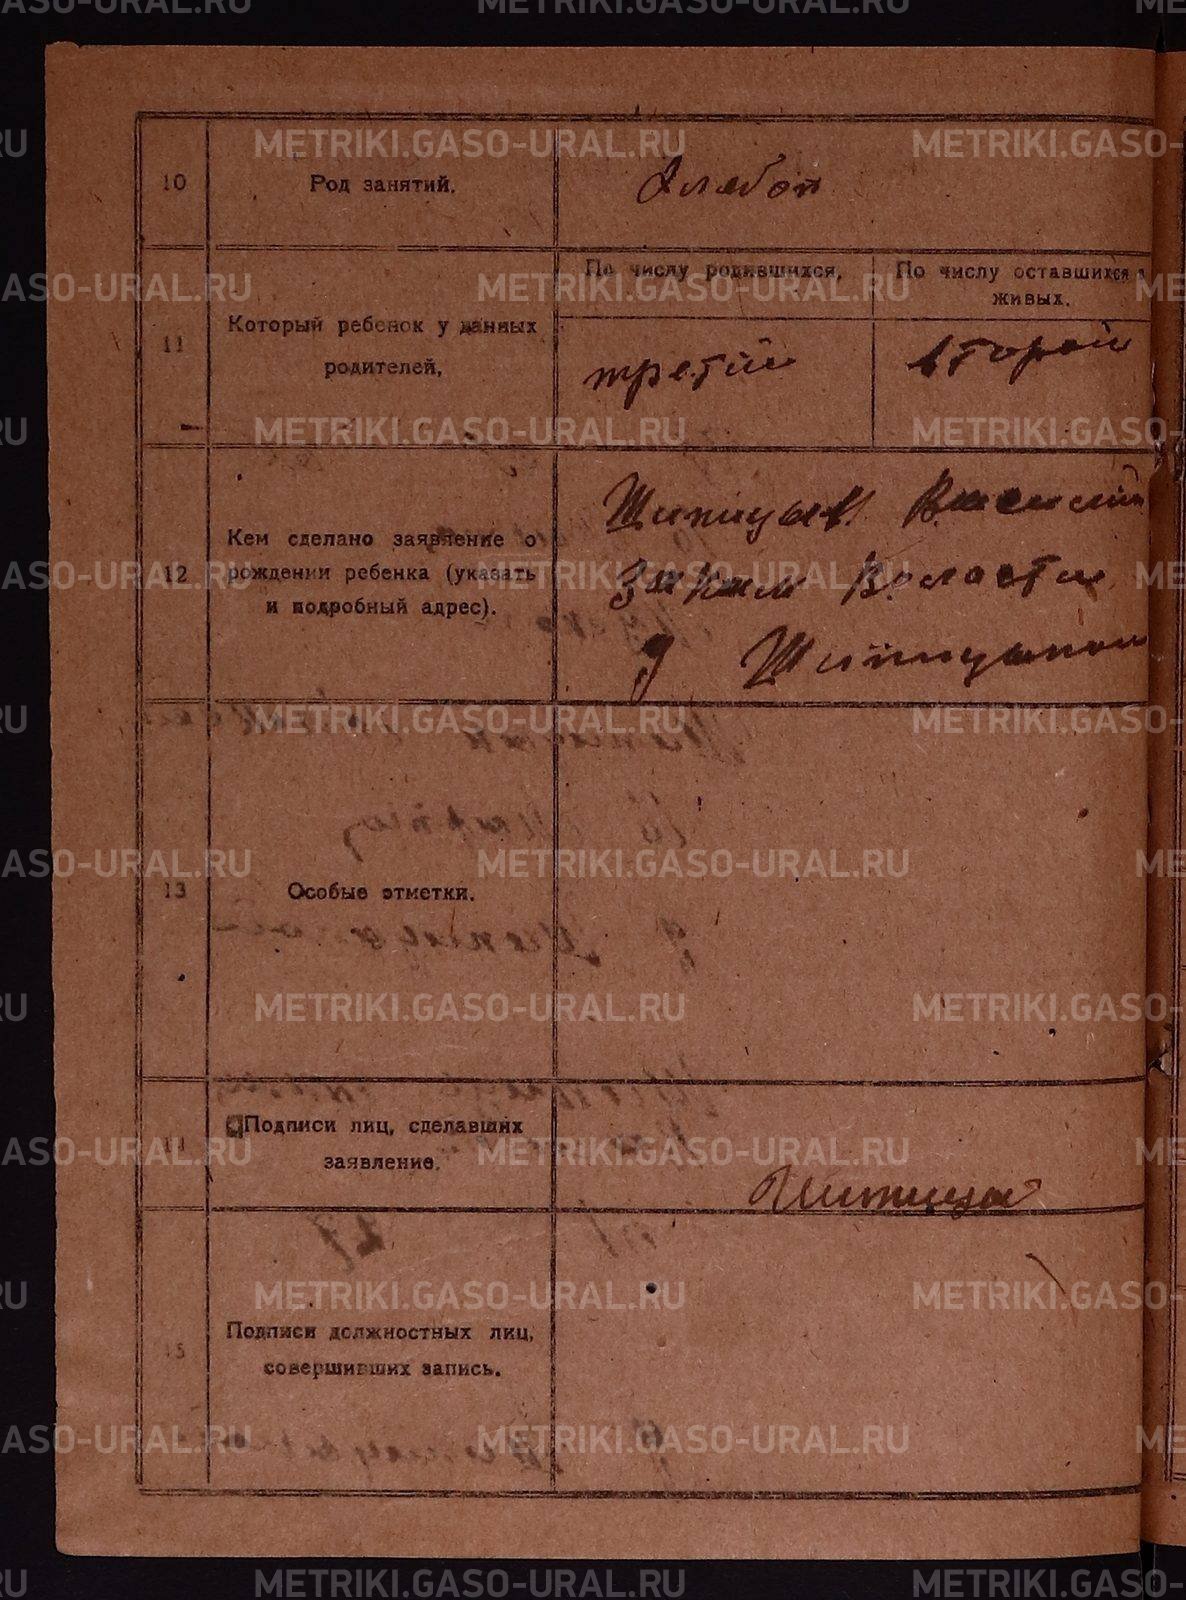 METRIKI.GASO-URAL.RU
10
Род занятий.
Хлебоп
11
Который ребенок у данных
родителей,
По числу родившихся,
По числу оставшихся в
живых.
третий
второй
12
Кем сделано заявление о
рождении ребенка (указать
и подробный адрес).
Шипицын Василий
Волости
д Шипицыной
13
Особые отметки.
14
Подписи лиц, сделавших
заявление.
Шипицын
15
Подписи должностных лиц,
совершивших запись.